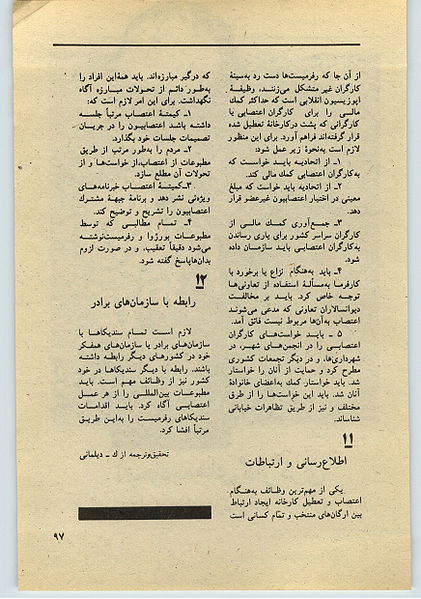 از آن جا که رفرمیست‌ها دست رد به‌سینهٔ
کارگران غیر متشکل می‌زنند، وظیفهٔ
اپوزیسیون انقلابی است که حداکثر کمک
مالی را برای کارگران اعتصابی یا
کارگرانی که پشت درکارخانهٔ تعطیل شده
قرار گرفته‌اند فراهم آورد. برای این منظور
لازم است به‌نحوهٔ زیر عمل شود:
۱ــ از اتحادیه باید خواست که
به‌کارگران اعتصابی کمک مالی کند.
۲ــ از اتحادیه باید خواست که مبلغ
معینی در اختیار اعتصابیون غیرعضو قرار
دهد.
۳ــ جمع‌آوری کمک مالی از
کارگران سراسر کشور برای یاری رساندن
به‌کارگران اعتصابی باید سازمان داده
شود.
۴ــ باید به‌هنگام نزاع یا برخورد با
کارفرما به‌مسألهٔ استفاده از تعاونی‌ها
توجه خاص کرد. باید بر مخالفت
دیوانسالاران تعاونی که مدعی می‌شوند
اعتصاب به‌آن‌ها مربوط نیست فائق آمد.
۵ ــ باید خواست‌های کارگران
اعتصابی را در انجمن‌های شهر، در
شهرداری‌ها، و در دیگر تجمعات کشوری
مطرح کرد و حمایت از آنان را خواستار
شد. باید خواستار کمک به‌اعضای خانوادهٔ
آنان شد. باید این خواست‌ها را از طرق
مختلف و نیز از طریق تظاهرات خیابانی
شناساند.
۱۱
اطلاع‌رسانی و ارتباطات
یکی از مهم‌ترین وظائف به‌هنگام
اعتصاب و تعطیل کارخانه ایجاد ارتباط
بین ارگان‌های منتخب و تمام کسانی است
که درگیر مبارزه‌اند. باید همهٔ‌این افراد را
به‌طور دائم از تحولات مبارزه آگاه
نگهداشت. برای این امر لازم است که:
۱ــ کمیتهٔ اعتصاب مرتباً جلسه
داشته باشد اعتصابیون را در جریان
تصمیمات جلسات خود بگذارد.
۲ــ مردم را به‌طور مرتب از طریق
مطبوعات از اعتصاب،از خواست‌ها و از
تحولات آن مطلع سازد.
۳ــ کمیتهٔ اعتصاب خبرنامه‌های
ویژه‌ئی نشر دهد و برنامهٔ جبههٔ مشترک
اعتصابیون را تشریح و توضیح کند.
۴ــ تمام مطالبی که توسط
مطبوعات بورژوا و رفرمیست‌نوشته
می‌شود دقیقاً تعقیب، و در صورت لزوم
بدان‌هاپاسخ گفته شود.
۱۲
رابطه با سازمان‌های برادر
لازم است تمام سندیکاها با
سازمان‌های برادر یا سازمان‌های همفکر
خود در کشورهای دیگر رابطه داشته
باشند. رابطه با دیگر سندیکاها در خود
کشور نیز از وظائف مهم است. باید
مطبوعات بین‌المللی را از هر عمل
اعتصابی آگاه کرد. باید اقدامات
سندیکاهای رفرمیست را به‌این طریق
مرتباً افشا کرد.
تحقیق‌وترجمه از ک ـ دیلمانی
۹۷